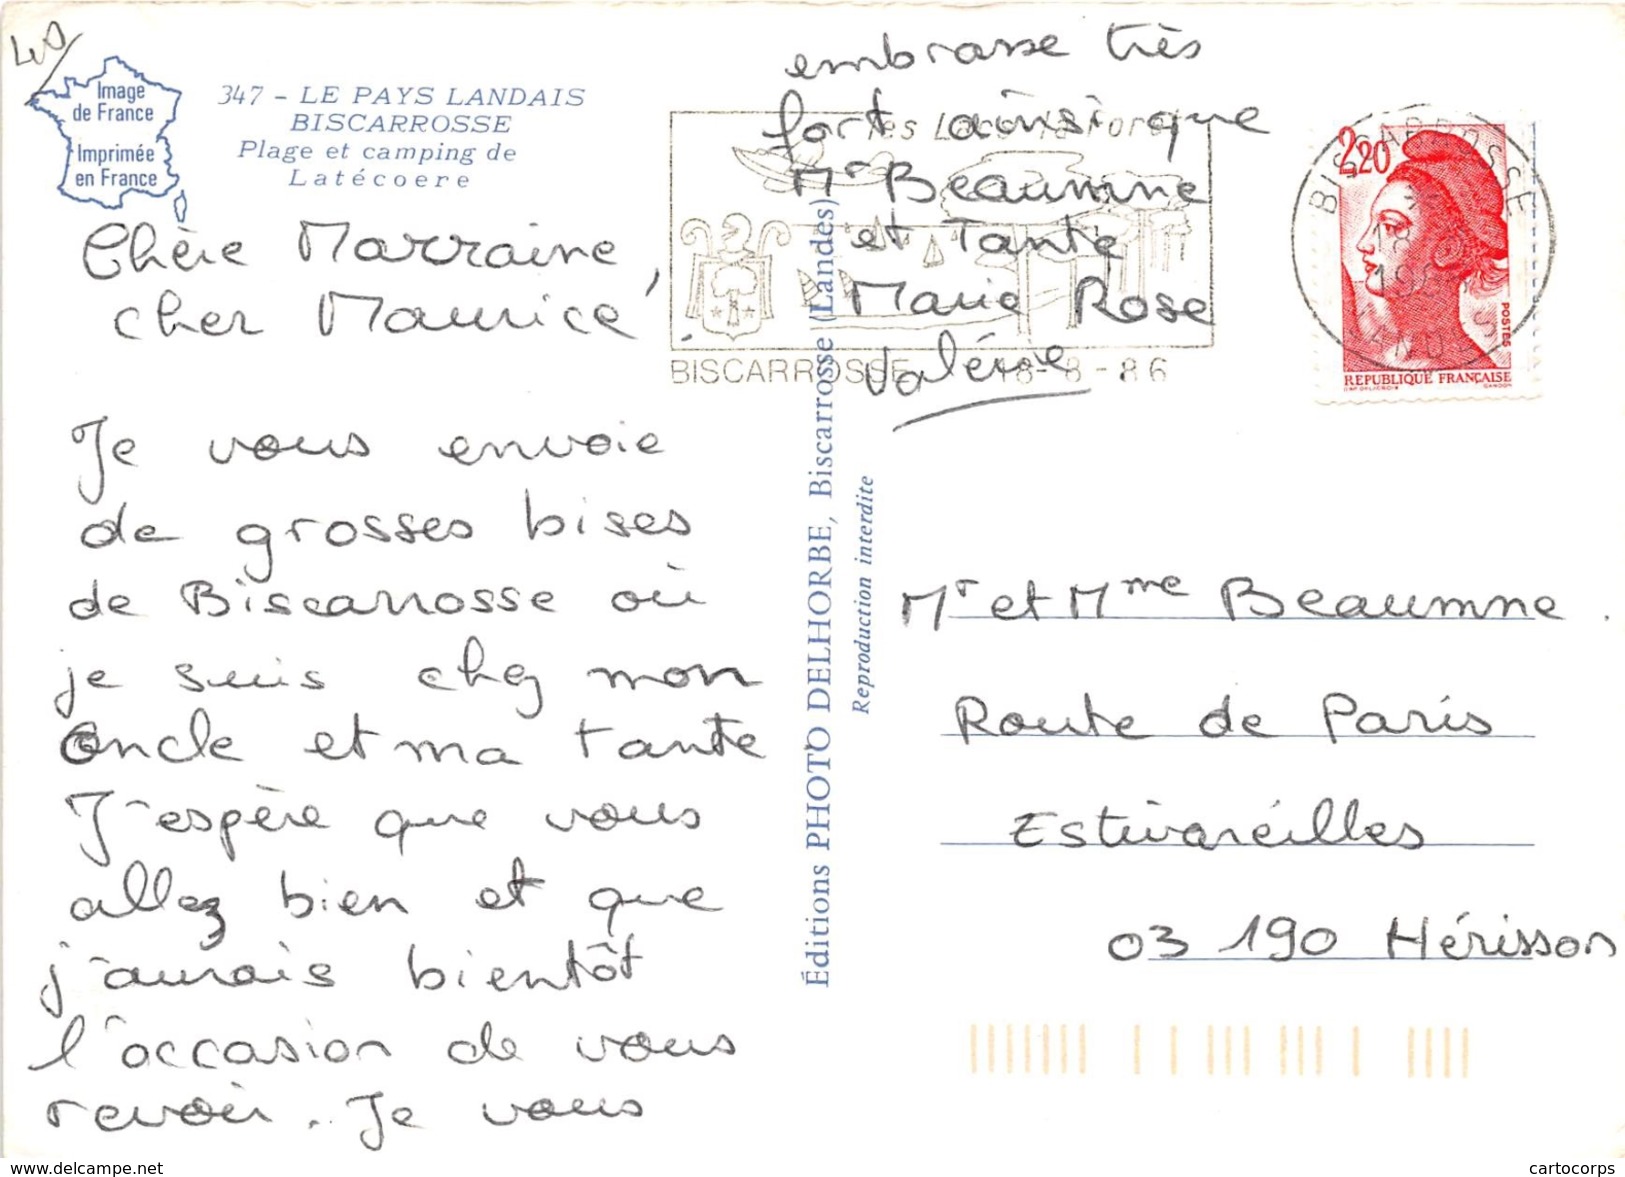 40
Image
de France
Imprimée
en France
347 - LE PAYS LANDAIS
BISCARROSSE
Plage et camping de
Latécoere
Chère Marraine,
cher Maurice,
Je vous envoie
de grosses bises
de Biscarrosse où
je suis chez mon
Oncle et ma tante
J'espère que vous
allez bien et que
j'aurais bientôt
l'occasion de vous
revoir. Je vous
embrasse très
fort ainsi que
Mr Beaumne
et Tante
Marie Rose
Valérie.
BISCARROSSE 18-8-86
Éditions PHOTO DELHORBE, Biscarrosse (Landes)
Reproduction interdite
BISCARROSSE
18
LANDES
2,20
POSTES
REPUBLIQUE FRANÇAISE
GANDON
Mr et Mme Beaumne.
Route de Paris
Estivareilles
03 190 Hérisson
www.delcampe.net
cartocorps